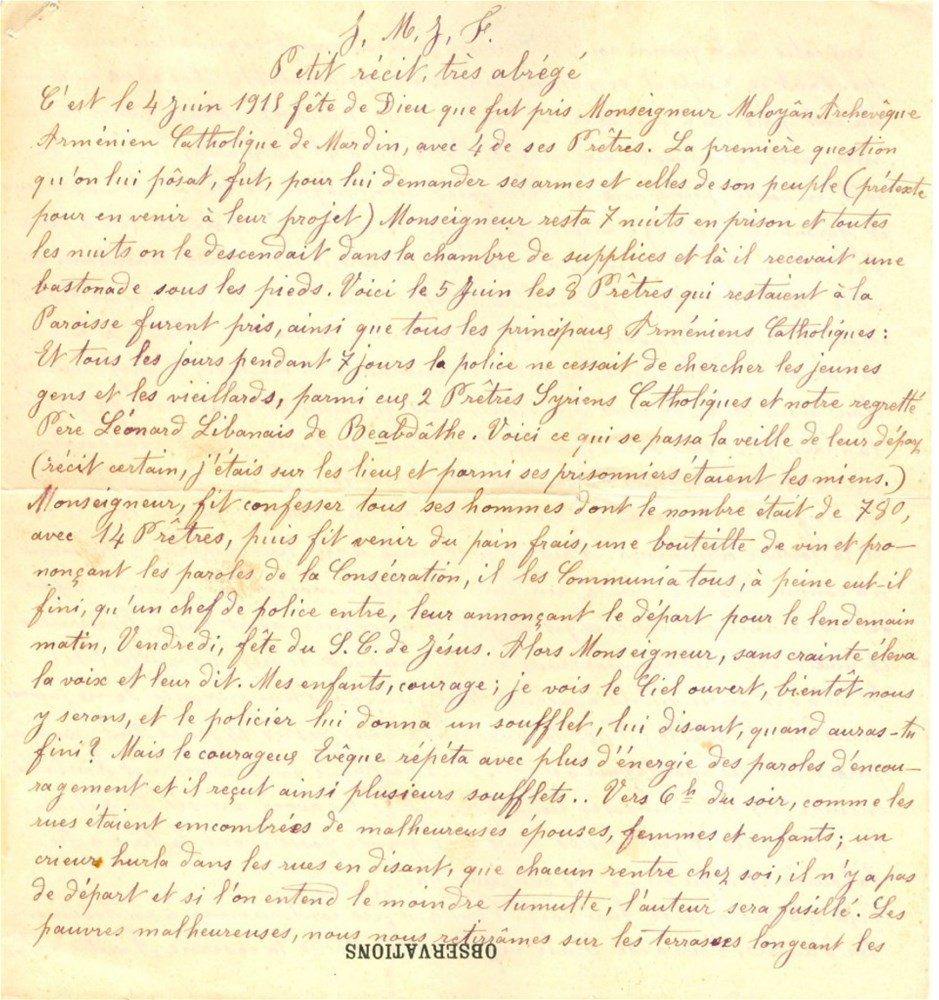 J. M. J. F.
Petit récit, très abrégé
C'est le 4 Juin 1915 fête de Dieu que fut pris Monseigneur Maloyân Archevêque
Arménien Catholique de Mardin, avec 4 de ses Prêtres. La première question
qu'on lui pôsat, fut, pour lui demander ses armes et celles de son peuple (prétexte
pour en venir à leur projet) Monseigneur resta 7 nuits en prison et toutes
les nuits on le descendait dans la chambre de supplices et là il recevait une
bastonade sous les pieds. Voici le 5 Juin les 8 Prêtres qui restaient à la
Paroisse furent pris, ainsi que tous les principaux Arméniens Catholiques :
Et tous les jours pendant 7 jours la police ne cessait de chercher les jeunes
gens et les vieillards, parmi eux 2 Prêtres Syriens Catholiques et notre regretté
Père Léonard Libanais de Beabdâthe. Voici ce qui se passa la veille de leur départ
(récit certain, j'étais sur les lieux et parmi ses prisonniers étaient les miens.)
Monseigneur, fit confesser tous ses hommes dont le nombre était de 780,
avec 14 Prêtres, puis fit venir du pain frais, une bouteille de vin et pro-
nonçant les paroles de la Consécration, il les Communia tous, à peine eut-il
fini, qu'un chef de police entre, leur annonçant le départ pour le lendemain
matin, Vendredi, fête du S. C. de Jésus. Alors Monseigneur, sans crainte éleva
la voix et leur dit. Mes enfants, courage ; je vois le Ciel ouvert, bientôt nous
y serons, et le policier lui donna un soufflet, lui disant, quand auras-tu
fini? Mais le courageux Evêque répéta avec plus d'énergie des paroles d'encou-
ragement et il reçut ainsi plusieurs soufflets.. Vers 6 h du soir, comme les
rues étaient emcombrées de malheureuses épouses, femmes et enfants ; un
crieur hurla dans les rues en disant, que chacun rentre chez soi, il n'y a pas
de départ et si l'on entend le moindre tumulte, l'auteur sera fusillé. Les
pauvres malheureuses, nous nous retirâmes sur les terrasses longeant les
OBSERVATIONS